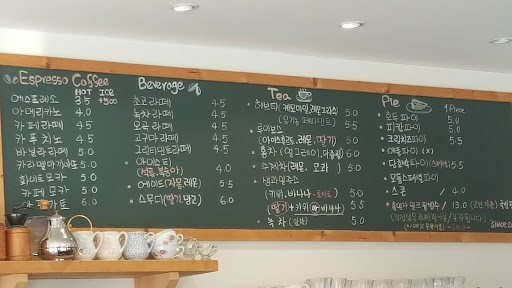 Espresso Coffee
HOT ICE
+500
에스프레소 3.5
아메리카노 4.0
카페라떼 4.5
카푸치노 4.5
바닐라라떼 5.0
카라멜마끼아또 5.0
화이트모카 5.0
카페모카 5.0
Beverage
초코라떼 4.5
녹차라떼 4.5
오곡라떼 4.5
고구마라떼 4.5
그린티민트라떼 4.5
아이스티 4.5
(석류, 복숭아) 4.0
에이드(자몽, 레몬) 5.5
스무디(딸기, 망고) 6.0
Tea
허브티(캐모마일, 레몬그라스) 5.0
(유기농 페파민트)
루이보스 5.0
(아이스후르츠, 레몬, 딸기) 5.0
홍차 (얼그레이, 아쌈) 6.0
수제차(레몬, 모과) 5.0
생과일쥬스
(키위, 바나나, 토마토) 5.0
딸기 + 키위 or 바나나 5.5
녹차 5.0
Pie
1 Piece
호두파이 5.0
피칸파이 5.0
크림치즈파이 5.5
(애플파이)
단호박파이 5.5
스콘 / 4.0
/ 13.0
SINCE